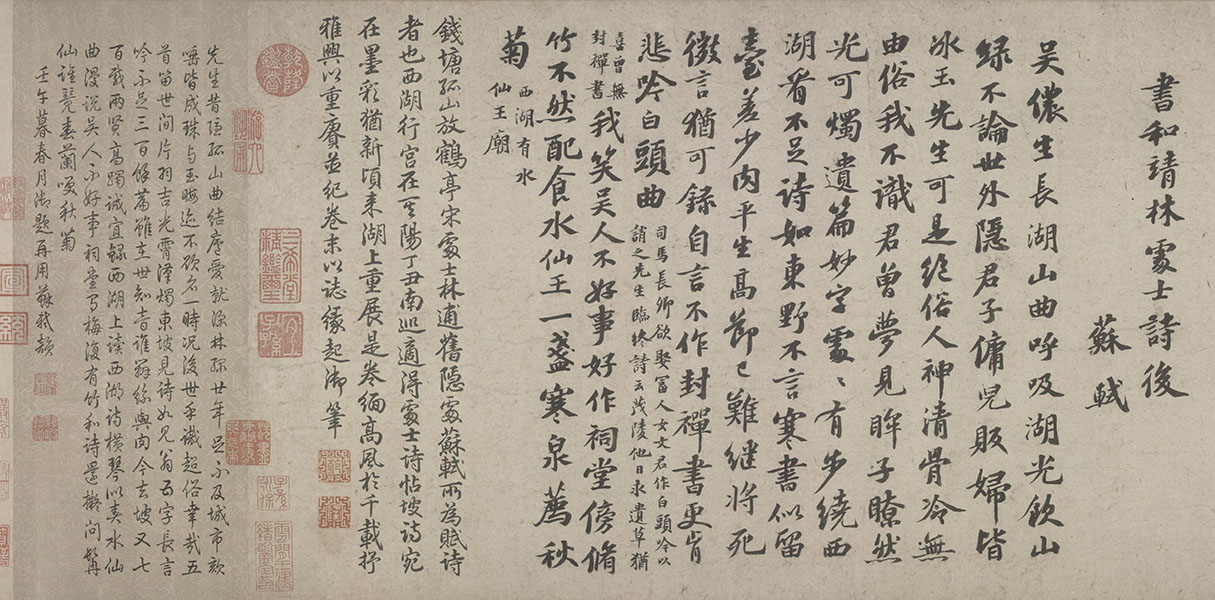 書和靖林處士詩後
蘇軾
吳儂生長湖山曲呼吸湖光飲山
綠不論世外隱君子傭兒販婦皆
冰玉先生可是絕俗人神清骨冷無
由俗我不識君曾夢見眸子瞭然
光可燭遺篇妙字處〻有步繞西
湖看不足詩如東野不言寒書似留
臺差少肉平生高節已難繼將死
微言猶可錄自言不作封禪書更肯
悲吟白頭曲
司馬長卿欲娶富人女文君作白頭吟以
誚之先生臨終詩云茂陵他日求遺草猶
喜曾無
封禪書
我笑吳人不好事好作祠堂傍脩
竹不然配食水仙王一盞寒泉薦秋
菊
西湖有水
仙王廟
錢塘孤山放鶴亭宋處士林逋舊隱處蘇軾所為賦詩
者也西湖行宮在其陽丁丑南巡適得處士詩帖坡詩宛
在墨彩猶新頃來湖上重展是卷緬高風於千載抒
雅興以重賡並紀卷末以誌緣起御筆
先生昔隱孤山曲結廬愛就深林綠廿年足不及城市欬
唾皆成珠与玉晦迹不欲名一時況復世乎譏超俗幸哉五
首留世間片羽吉光霄漢燭東坡見詩如見翁百字長言
吟不足三百餘篇雖在世知音誰辨絲與肉今去坡又七
百載兩賢高躅誠宜錄西湖上讀西湖詩橫琴以奏水仙
曲漫說吳人不好事祠堂寫梅復有竹和詩還擬問髯
仙誰薨春蘭嗅秋菊
壬午暮春月御題再用蘇軾韻